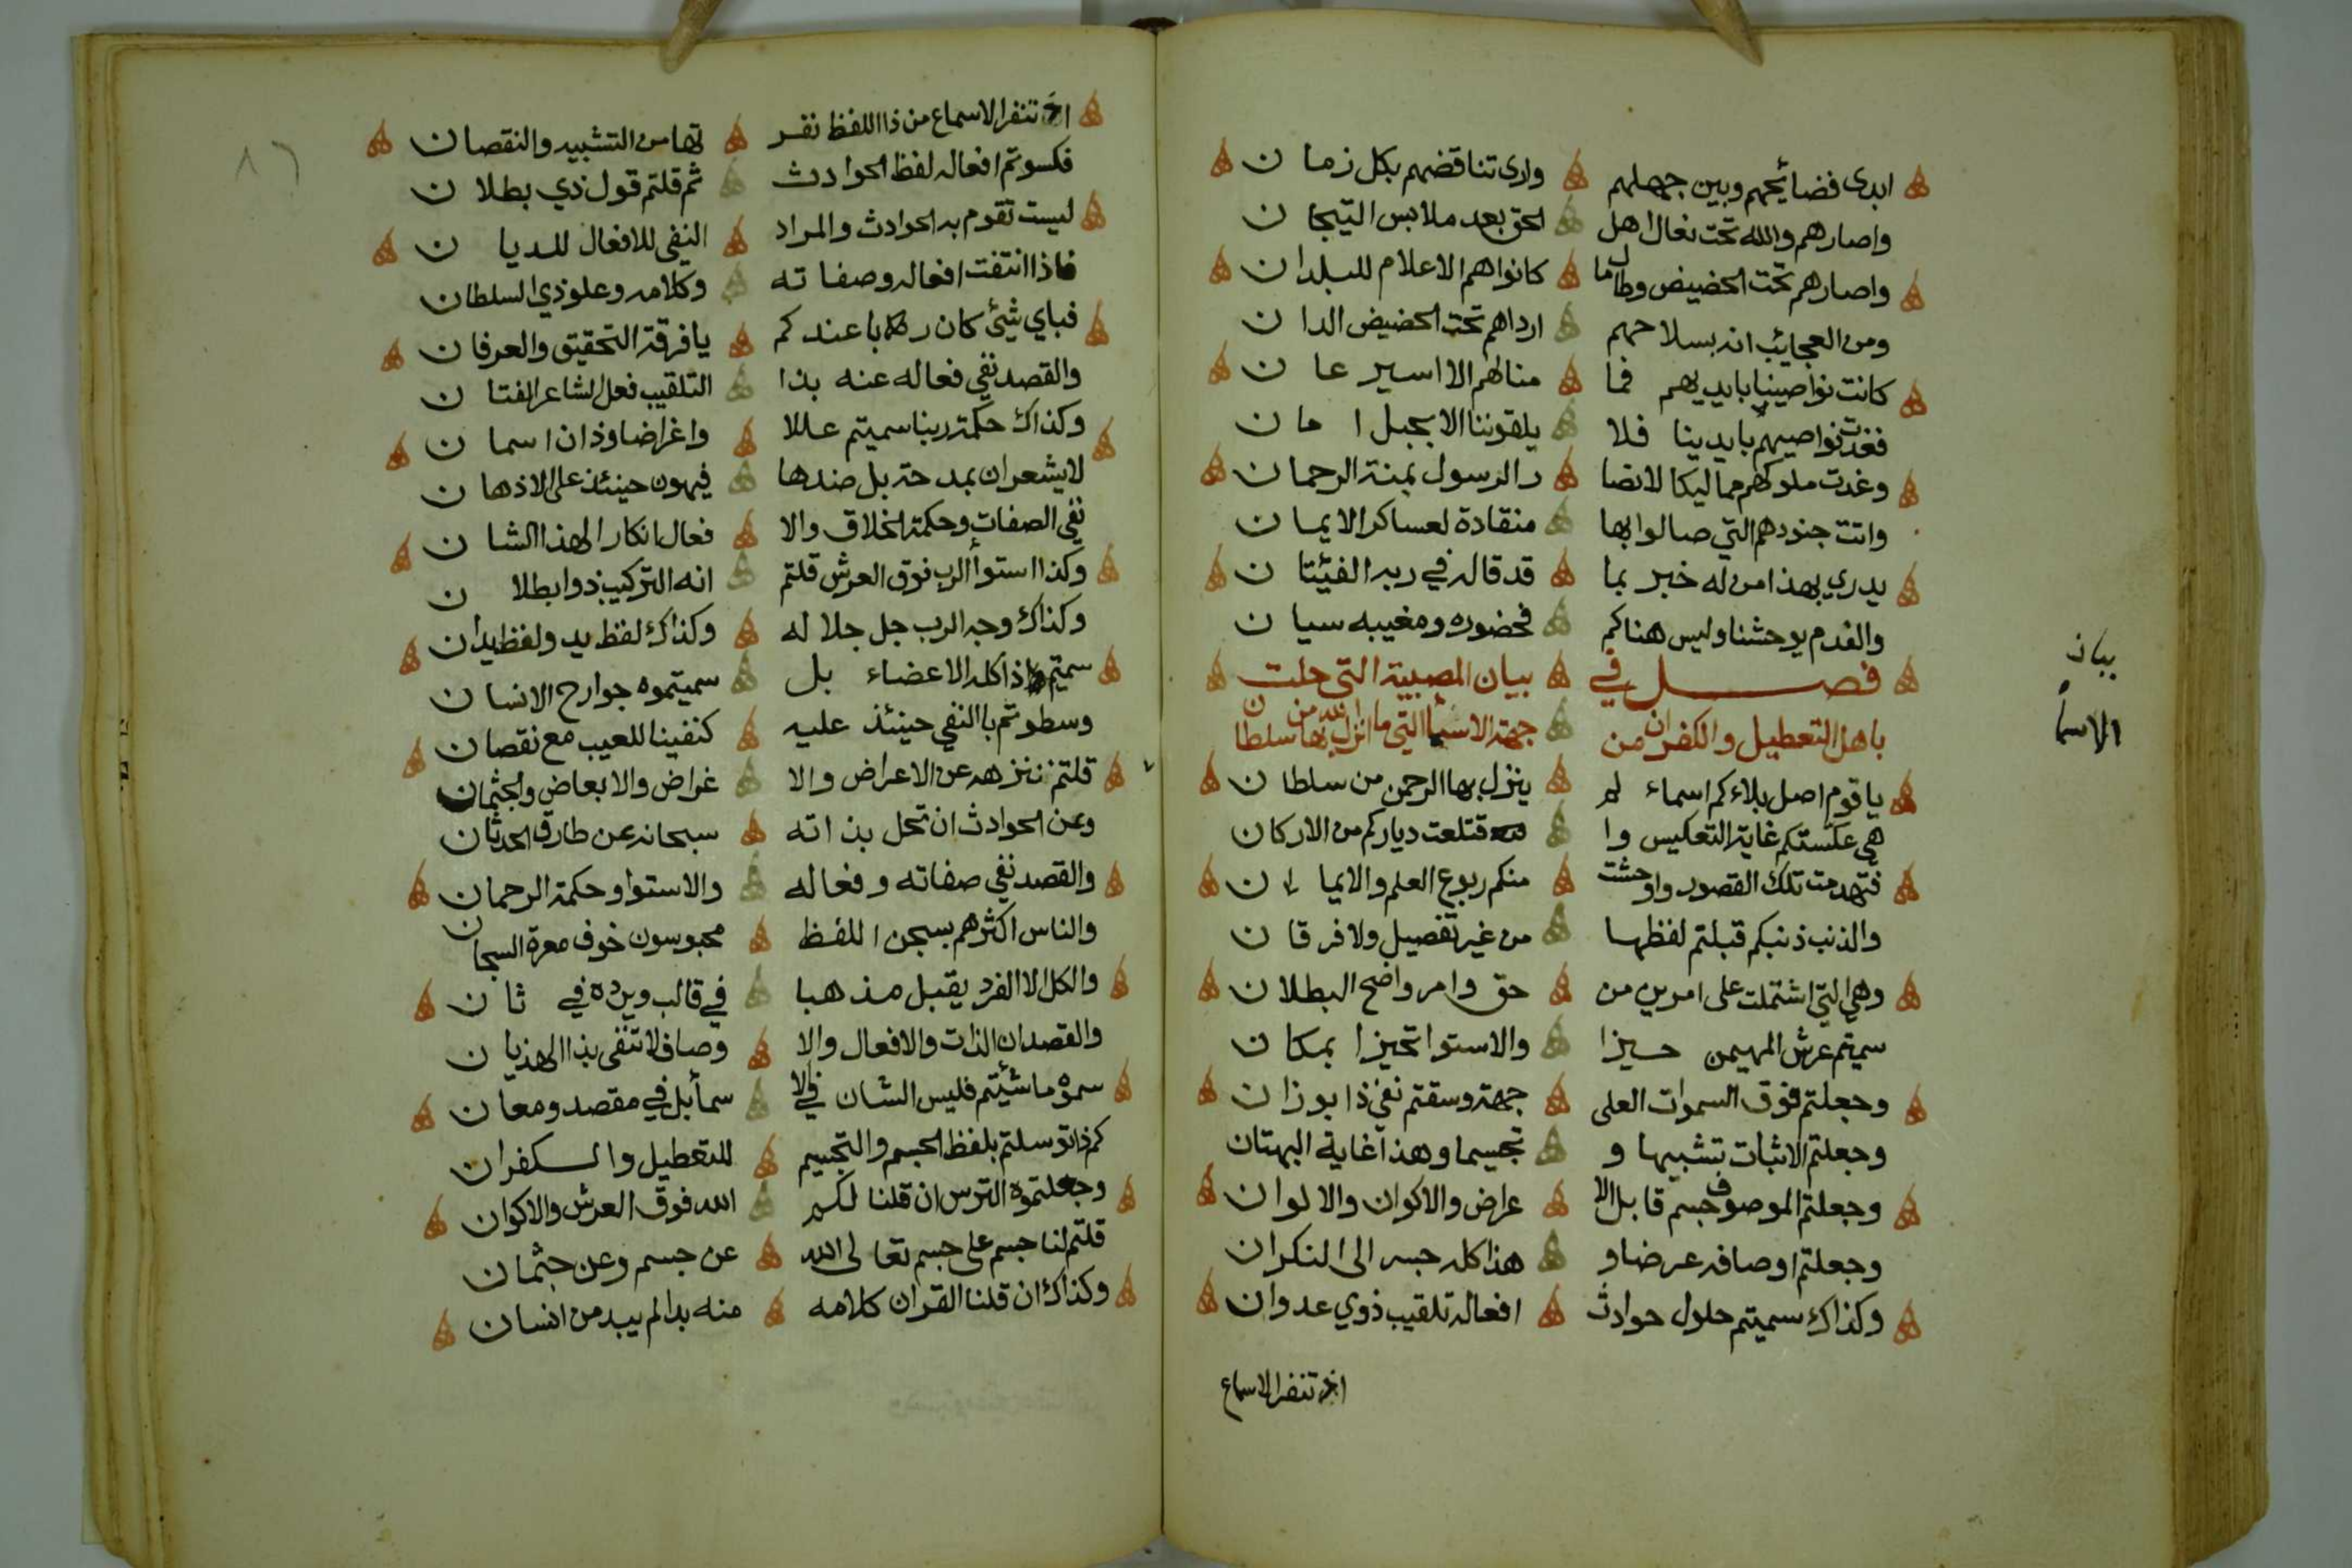 ابدى فضائحهم وبين جهلهم وارى تناقضهم بكل زمان
واصارهم والله تحت نعال اهل الحق بعد ملابس التيجان
واصارهم تحت الحضيض وطال ما كانوا هم الاعلام للبلدان
ومن العجايب انه بسلاحهم ارداهم تحت الحضيض الدان
كانت نواصينا بايديهم فما منا لهم الا اسير عان
فغدت نواصيهم بايدينا فلا يلقوننا الا بحبل امان
وغدت ملوكهم مماليكا لانصا ر الرسول بمنة الرحمان
واتت جنودهم التي صالوا بها منقادة لعساكر الايمان
يدري بهذا من له خبر بما قد قاله في ربه الفئتان
والفدم يوحشنا وليس هناكم فحضوره ومغيبه سيان
فصل في بيان المصيبة التي حلت
باهل التعطيل والكفران من جهة الاسمأ التي ما انزل الله بها من سلطان
يا قوم اصل بلاءكم اسماء لم ينزل بها الرحمن من سلطان
هي عكستكم غاية التعكيس وا قتلعت دياركم من الاركان
فتهدمت تلك القصور واوحشت منكم ربوع العلم والايمان
والذنب ذنبكم قبلتم لفظها من غير تفصيل ولا فرقان
وهي التي اشتملت على امرين من حق وامر واضح البطلان
سميتم عرش المهيمن حيزا والاستوا تحيزا بمكان
وجعلتم فوق السموات العلى جهة وسقتم نفي ذا بوزان
وجعلتم الاثبات تشبيها و تجسيما وهذا غاية البهتان
وجعلتم الموصوف جسم قابل الا عراض والاكوان والالوان
وجعلتم اوصافه عرضا و هذا كله جسر الى النكران
وكذاك سميتم حلول حوادث افعاله تلقيب ذوي عدوان
اذ تنفر الاسماع
بيان
الاسمأ
اذ تنفر الاسماع من ذا اللفظ نفر تها من التشبيه والنقصان
فكسوتم افعاله لفظ الحوادث ثم قلتم قول ذي بطلان
ليست تقوم به الحوادث والمراد النفي للافعال للديان
فاذا انتفت افعاله وصفاته وكلامه وعلو ذي السلطان
فباي شئ كان ربا عندكم يا فرقة التحقيق والعرفان
والقصد نفي فعاله عنه بذا التلقيب فعل الشاعر الفتان
وكذاك حكمة ربنا سميتم عللا واغراضا وذان اسمان
لا يشعران بمدحة بل ضدها فيهون حينئذ على الاذهان
نفي الصفات وحكمة الخلاق والا فعال انكارا لهذا الشان
وكذا استوأ الرب فوق العرش قلتم انه التركيب ذو ابطلان
وكذاك وجه الرب جل جلاله وكذاك لفظ يد ولفظ يدان
سميتم ذا كله الاعضاء بل سميتموه جوارح الانسان
وسطوتم بالنفي حينئذ عليه كنفينا للعيب مع نقصان
قلتم ننزهه عن الاعراض والا غراض والابعاض والجثمان
وعن الحوادث ان تحل بذاته سبحانه عن طارق الحدثان
والقصد نفي صفاته وفعاله والاستوا وحكمة الرحمان
والناس اكثرهم بسجن اللفظ محبوسون خوف معرة السجان
والكل الا الفرد يقبل مذهبا في قالب ويرده في ثان
والقصد ان الذات والافعال والا وصاف لا تنفى بذا الهذيان
سموه ما شئتم فليس الشان في الا سمأ بل في مقصد ومعان
كم ذا توسلتم بلفظ الجسم والتجسيم للتعطيل والكفران
وجعلتموه الترس ان قلنا لكم الله فوق العرش والاكوان
قلتم لنا جسم على جسم تعالى الله عن جسم وعن جثمان
وكذاك ان قلنا القران كلامه منه بدا لم يبد من انسان